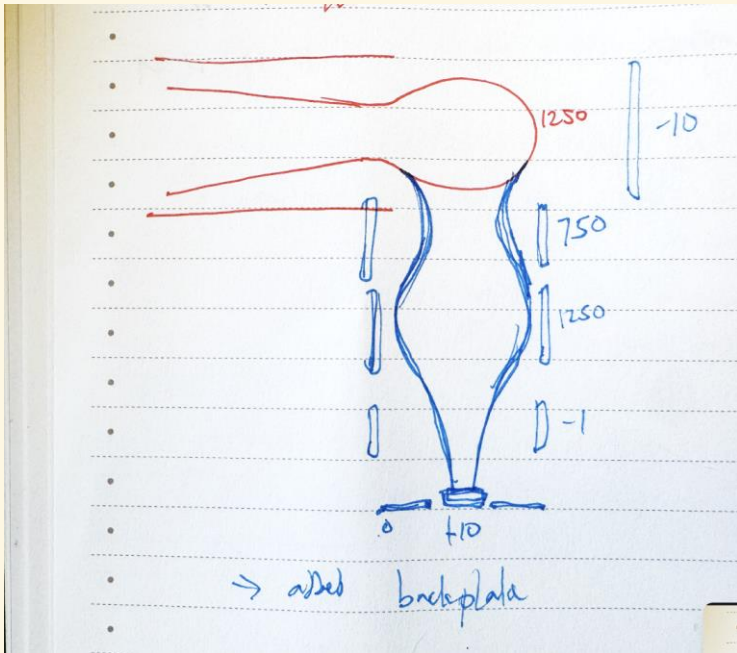 1250
-10
750
1250
-1
0 +10
→ added backplate